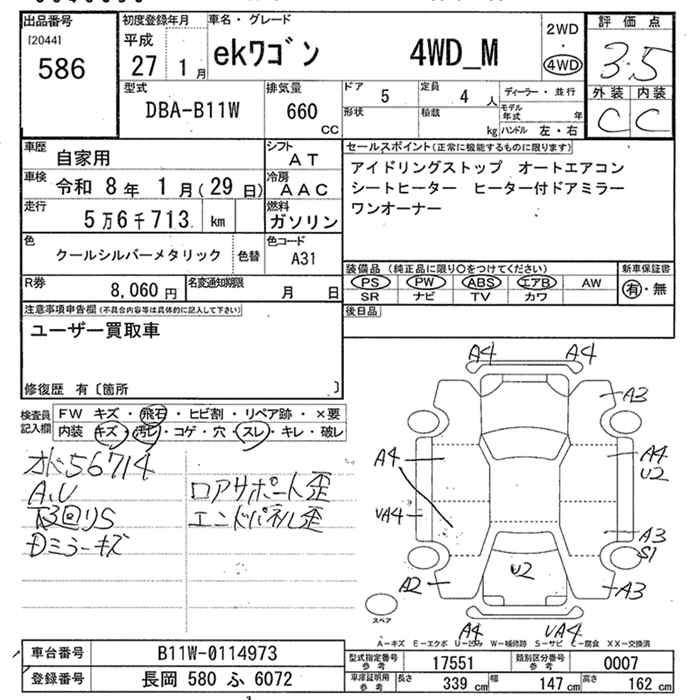 出品番号
[2044]
586
初度登録年月
平成
27 1月
車名・グレード
ekワゴン 4WD_M
2WD
・
4WD
評価点
3.5
外装 内装
C C
型式
DBA-B11W
排気量
660
CC
ドア 5
定員 4 人
形状
積載 kg
ディーラー・並行
モデル年式 年
ハンドル 左・右
車歴
自家用
シフト
AT
車検
令和 8年 1月(29日)
冷房
AAC
走行
5万6千713 km
燃料
ガソリン
色
クールシルバーメタリック
色替
色コード
A31
R券
8,060円
名変通知期限
月 日
セールスポイント(正常に機能するものに限ります)
アイドリングストップ オートエアコン
シートヒーター ヒーター付ドアミラー
ワンオーナー
装備品(純正品に限り○をつけてください)
PS PW ABS エアB AW
SR ナビ TV カワ
新車保証書
有・無
後日品
注意事項申告欄(不具合内容等は具体的に記入して下さい)
ユーザー買取車
修復歴 有〔箇所 〕
検査員記入欄
FW キズ・飛石・ヒビ割・リペア跡・×要
内装 キズ・汚レ・コゲ・穴・スレ・キレ・破レ
56714
A,U
下回りS
Dミラーキズ
ロアサポート歪
エンドパネル歪
A4 A4
A3
A4
A4
U2
UA4
A3
S1
A2
U2
A3
A4 UA4
スペア
A-キズ E-エクボ U-凹み W-補修跡 S-サビ C-腐食 XX-交換済
車台番号
B11W-0114973
登録番号
長岡 580 ふ 6072
型式指定番号
参考
17551
類別区分番号
参考
0007
車庫証明寸
参考
長さ 339 cm
幅 147 cm
高さ 162 cm